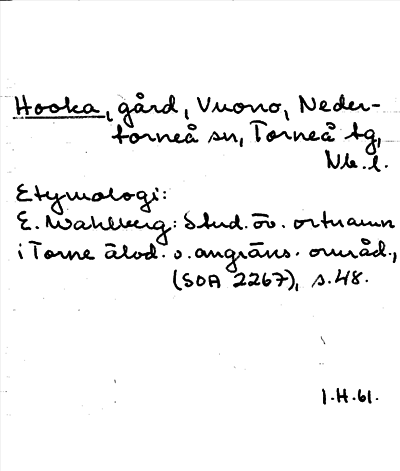 Hooka, gård, Vuono, Neder-
torneå sn, Torneå tg,
Nb. l.
Etymologi:
E. Wahlberg: Stud. öv. ortnamn
i Torne älvd. o. angräns. områd.,
(SOA 2267), s. 48.
I.H. 61.